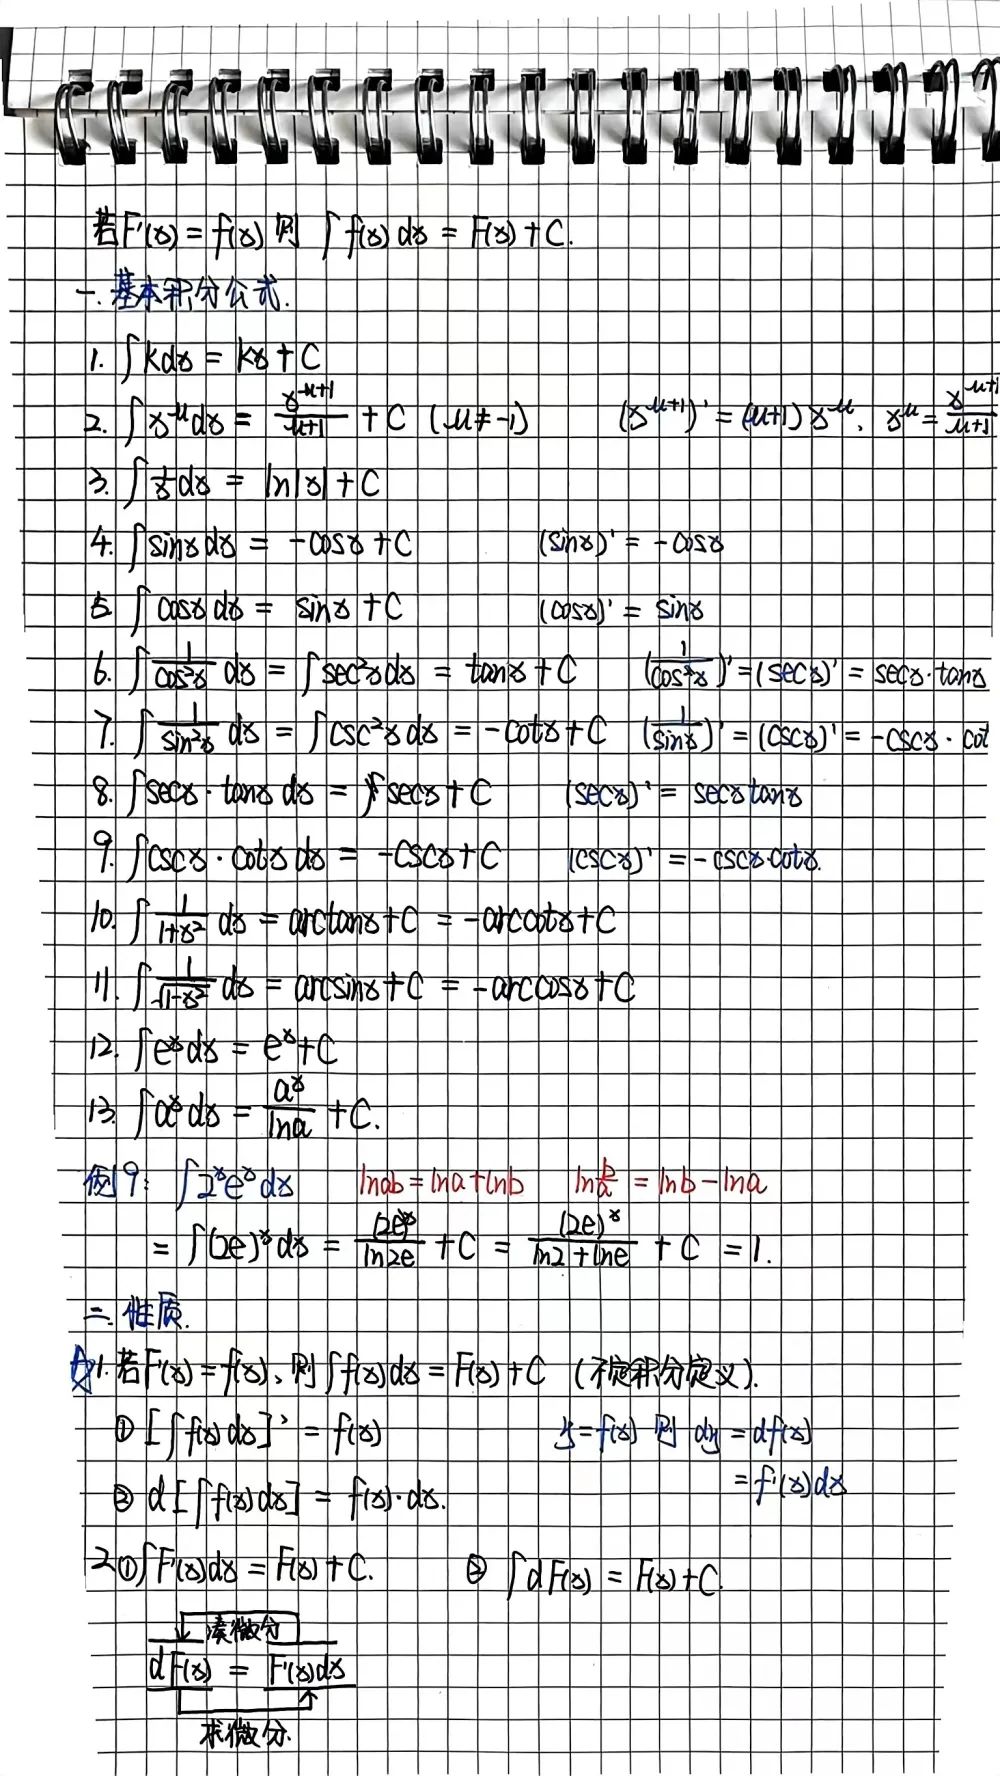 若F'(x) = f(x) 则 ∫f(x)dx = F(x)+C.
一.基本积分公式.
1. ∫kdx = kx+C
2. ∫x^μdx = x^(μ+1)/(μ+1) + C (μ≠-1) (x^(μ+1))' = (μ+1)x^μ. x^μ = x^(μ+1)/(μ+1)
3. ∫1/x dx = ln|x|+C
4. ∫sinxdx = -cosx+C (sinx)' = -cosx
5 ∫cosxdx = sinx+C (cosx)' = sinx
6. ∫1/cos²x dx = ∫sec²xdx = tanx+C (1/cos²x)' = (secx)' = secx·tanx
7. ∫1/sin²x dx = ∫csc²xdx = -cotx+C (1/sinx)' = (cscx)' = -cscx·cot
8. ∫secx·tanxdx = secx+C (secx)' = secxtanx
9. ∫cscx·cotxdx = -cscx+C (cscx)' = -cscx·cotx.
10. ∫1/(1+x²) dx = arctanx+C = -arccotx+C
11. ∫1/√(1-x²) dx = arcsinx+C = -arccosx+C
12. ∫e^xdx = e^x+C
13. ∫a^xdx = a^x/lna +C.
例9: ∫2^xe^xdx lnab = lna+lnb ln b/a = lnb-lna
= ∫(2e)^xdx = (2e)^x/ln2e + C = (2e)^x/(ln2+lne) + C = 1.
二.性质.
☆1. 若F'(x) = f(x), 则∫f(x)dx = F(x)+C (不定积分定义).
① [∫f(x)dx]' = f(x) y=f(x) 则 dy = df(x)
= f'(x)dx
② d[∫f(x)dx] = f(x)·dx.
2① ∫F'(x)dx = F(x)+C. ② ∫dF(x) = F(x)+C.
凑微分
dF(x) = F'(x)dx
求微分.